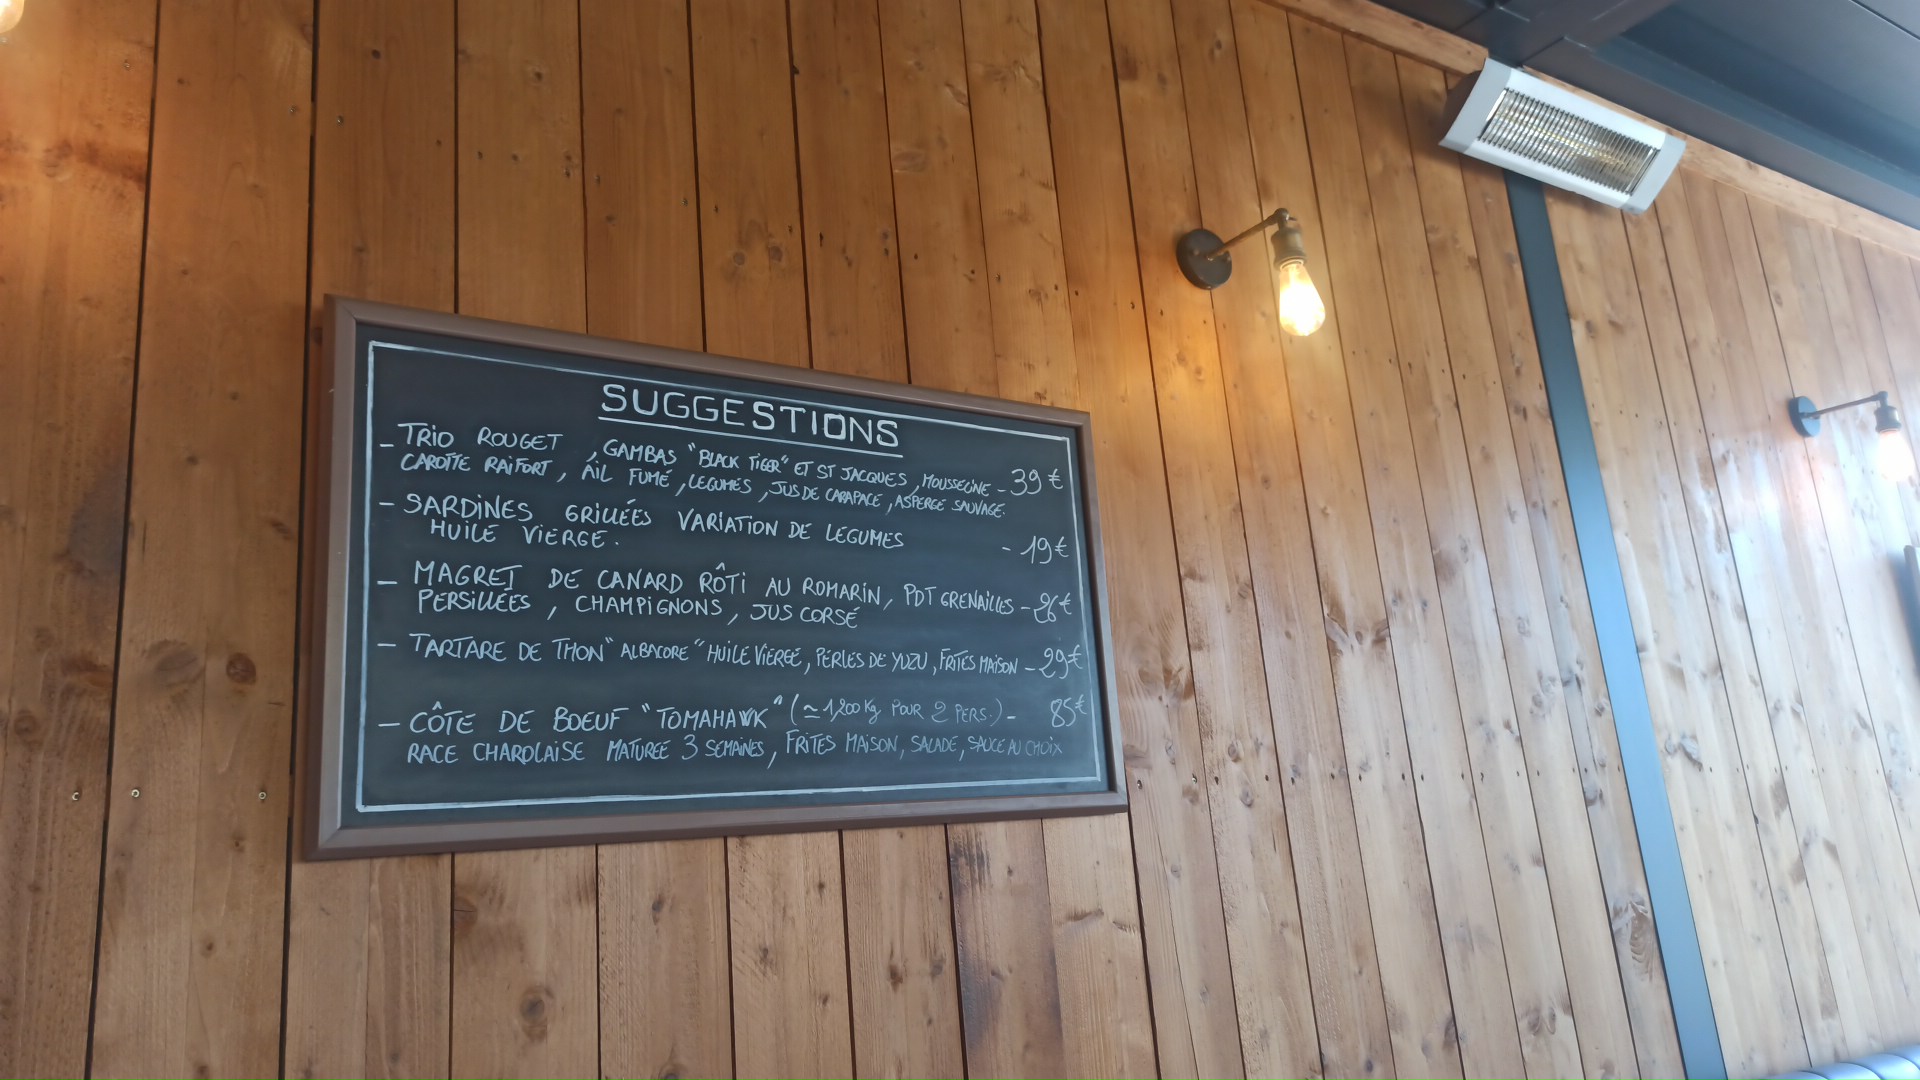 SUGGESTIONS
- TRIO ROUGET , GAMBAS "BLACK TIGER" ET ST JACQUES , MOUSSELINE - 39 €
CAROTTE RAIFORT , AIL FUMÉ , LEGUMES , JUS DE CARAPACE , ASPERGE SAUVAGE.
- SARDINES GRILLÉES VARIATION DE LEGUMES - 19 €
HUILE VIERGE.
- MAGRET DE CANARD RÔTI AU ROMARIN, PDT GRENAILLES - 26 €
PERSILLÉES , CHAMPIGNONS , JUS CORSÉ
- TARTARE DE THON "ALBACORE" HUILE VIERGE, PERLES DE YUZU , FRITES MAISON - 29 €
- CÔTE DE BOEUF "TOMAHAWK" (≃ 1,200 Kg POUR 2 PERS.) - 85 €
RACE CHAROLAISE MATUREE 3 SEMAINES, FRITES MAISON, SALADE, SAUCE AU CHOIX